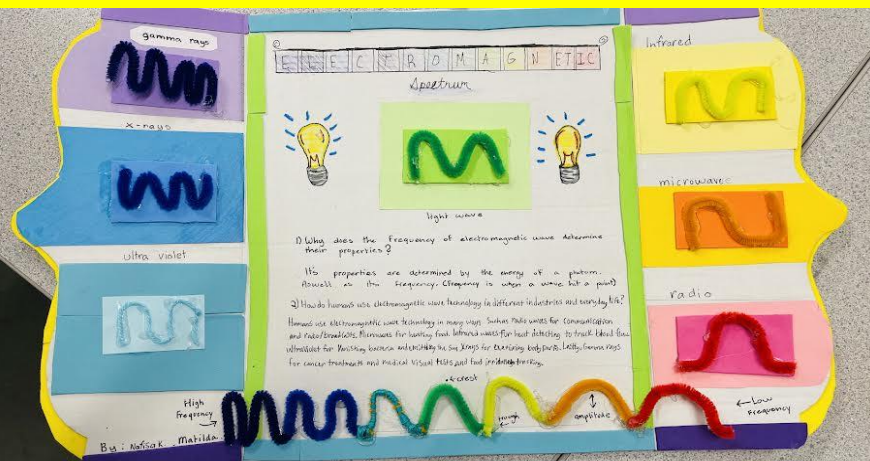 gamma rays
x-rays
ultra violet
High
Frequency
By: Matilda
ELECTROMAGNETIC
Spectrum
light wave
1) Why does the frequency of electromagnetic wave determine
their properties?
It's properties are determined by the energy of a photon.
Aswell as its frequency. (Frequency is when a wave hit a point)
2) How do humans use electromagnetic wave technology in different industries and everyday life?
Humans use electromagnetic wave technology in many ways. Such as radio waves for communication
and radio/broadcasts. Microwaves for heating food. Infrared waves for heat detecting to track blood flow.
ultraviolet for bacteria and the Sun. Xrays for examining body parts. Lastly, Gamma rays
for cancer treatments and medical visual tests and food tracking.
crest
trough
amplitude
Infrared
microwaves
radio
Low
Frequency